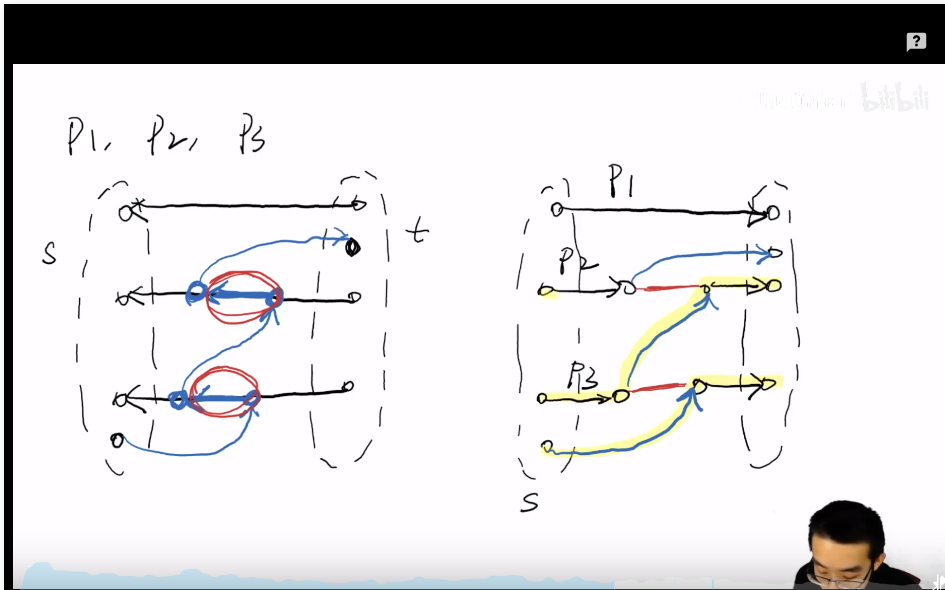 ?
bilibili
P1, P2, P3
P1
S
t
P2
P3
S